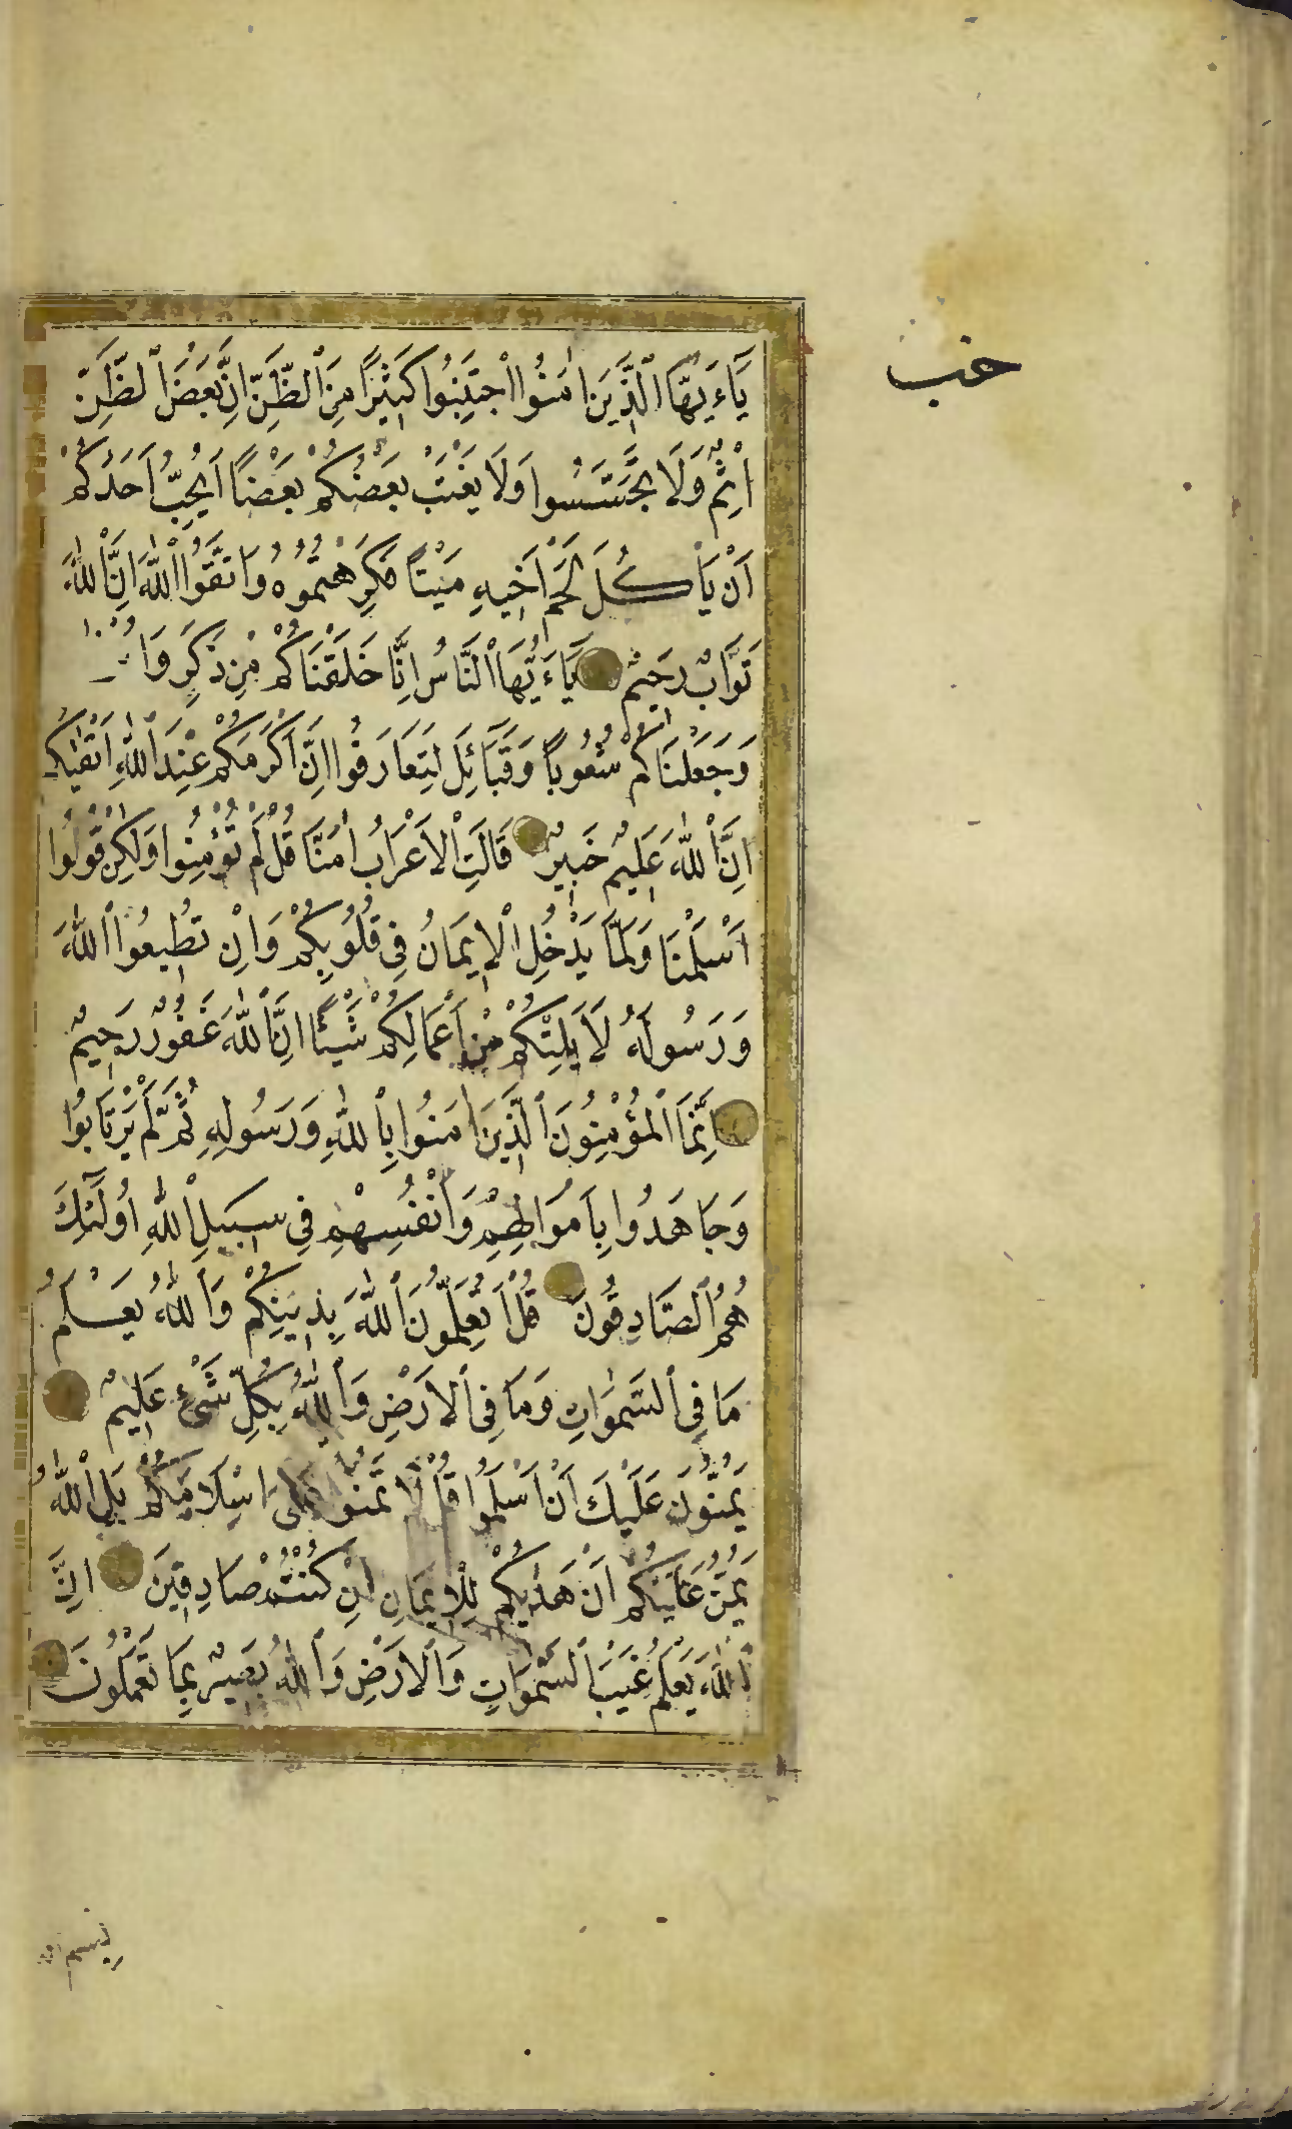 يَٓاءَيُّهَا ٱلَّذِينَ اٰمَنُوا ٱجْتَنِبُوا كَثِيرًا مِنَ ٱلظَّنِّ اِنَّ بَعْضَ ٱلظَّنِّ
اِثْمٌ وَلَا تَجَسَّسُوا وَلَا يَغْتَبْ بَعْضُكُمْ بَعْضًا اَيُحِبُّ اَحَدُكُمْ
اَنْ يَأْكُلَ لَحْمَ اَخِيهِ مَيْتًا فَكَرِهْتُمُوهُ وَاتَّقُوا ٱللّٰهَ اِنَّ ٱللّٰهَ
تَوَّابٌ رَحِيمٌ يَٓاءَيُّهَا ٱلنَّاسُ اِنَّا خَلَقْنَاكُمْ مِنْ ذَكَرٍ وَا
وَجَعَلْنَاكُمْ شُعُوبًا وَقَبَٓائِلَ لِتَعَارَفُوا اِنَّ اَكْرَمَكُمْ عِنْدَ ٱللّٰهِ اَتْقٰيكُمْ
اِنَّ ٱللّٰهَ عَلِيمٌ خَبِيرٌ قَالَتِ ٱلْاَعْرَابُ اٰمَنَّا قُلْ لَمْ تُؤْمِنُوا وَلٰكِنْ قُولُوا
اَسْلَمْنَا وَلَمَّا يَدْخُلِ ٱلْاِيمَانُ فِي قُلُوبِكُمْ وَاِنْ تُطِيعُوا ٱللّٰهَ
وَرَسُولَهُ لَا يَلِتْكُمْ مِنْ اَعْمَالِكُمْ شَيْـًٔا اِنَّ ٱللّٰهَ غَفُورٌ رَحِيمٌ
اِنَّمَا ٱلْمُؤْمِنُونَ ٱلَّذِينَ اٰمَنُوا بِٱللّٰهِ وَرَسُولِهِ ثُمَّ لَمْ يَرْتَابُوا
وَجَاهَدُوا بِاَمْوَالِهِمْ وَاَنْفُسِهِمْ فِي سَبِيلِ ٱللّٰهِ اُولَٓئِكَ
هُمُ ٱلصَّادِقُونَ قُلْ اَتُعَلِّمُونَ ٱللّٰهَ بِدِينِكُمْ وَٱللّٰهُ يَعْلَمُ
مَا فِي ٱلسَّمٰوَاتِ وَمَا فِي ٱلْاَرْضِ وَٱللّٰهُ بِكُلِّ شَيْءٍ عَلِيمٌ
يَمُنُّونَ عَلَيْكَ اَنْ اَسْلَمُوا قُلْ لَا تَمُنُّوا عَلَى اِسْلَامَكُمْ بَلِ ٱللّٰهُ
يَمُنُّ عَلَيْكُمْ اَنْ هَدٰيكُمْ لِلْاِيمَانِ اِنْ كُنْتُمْ صَادِقِينَ اِنَّ
ٱللّٰهَ يَعْلَمُ غَيْبَ ٱلسَّمٰوَاتِ وَٱلْاَرْضِ وَٱللّٰهُ بَصِيرٌ بِمَا تَعْمَلُونَ
حزب
بسم الله